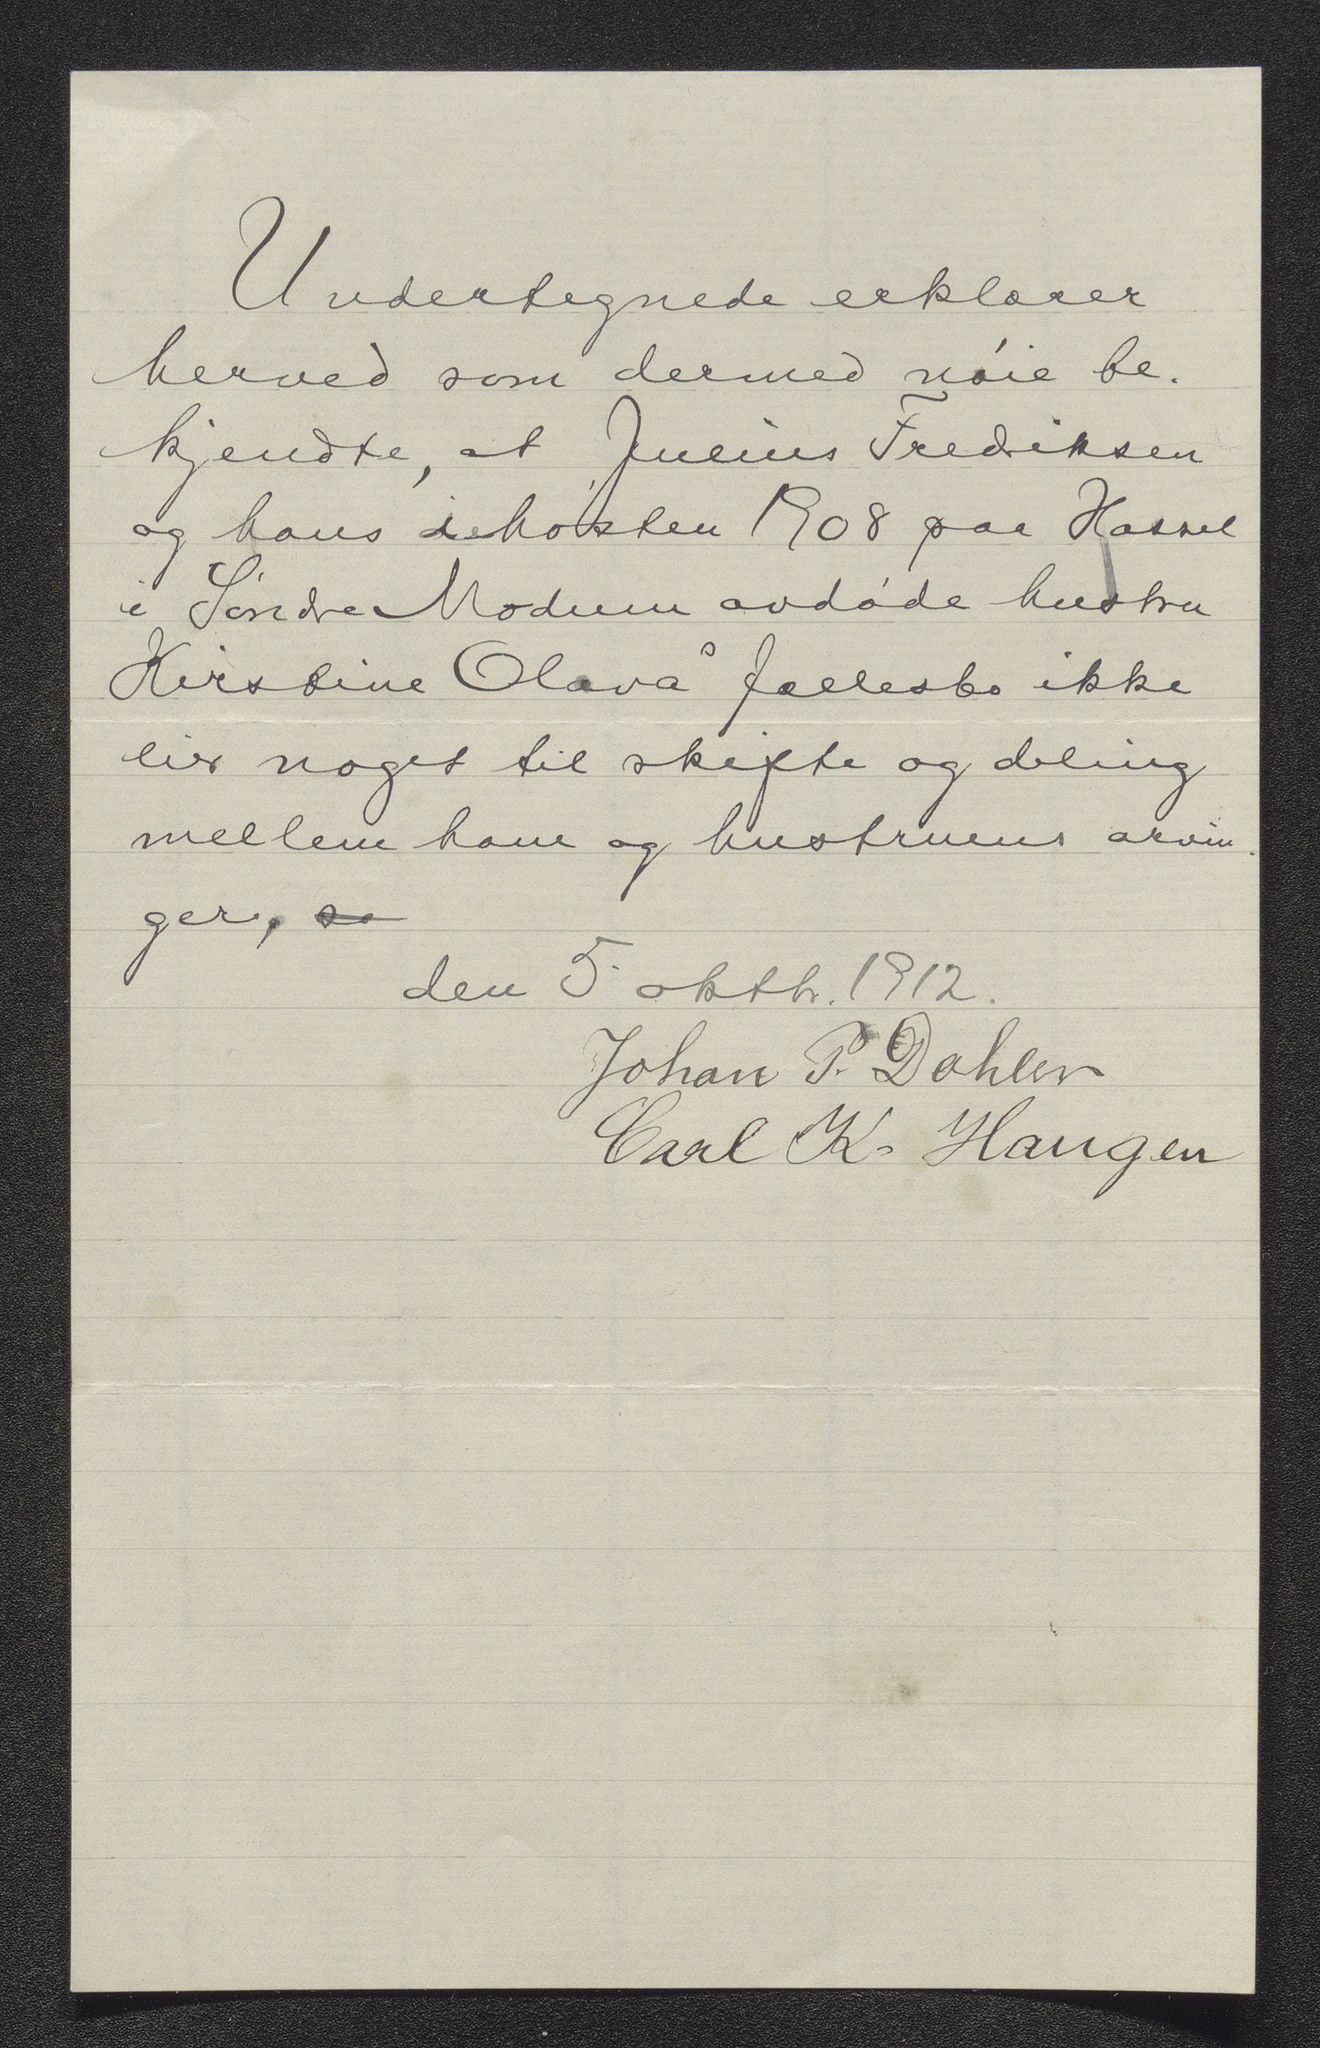 Undertegnede erklærer
herved som dermed nøie be-
kjendte, at Julius Fredriksen
og hans i høsten 1908 paa Hassel
i Søndre Modum avdøde hustru
Kirstine Olava's fællesbo ikke
eier noget til skifte og deling
mellem ham og hustruens arvin-
ger, so
den 5. oktbr. 1912.
Johan P. Dahler
Carl K. Haugen